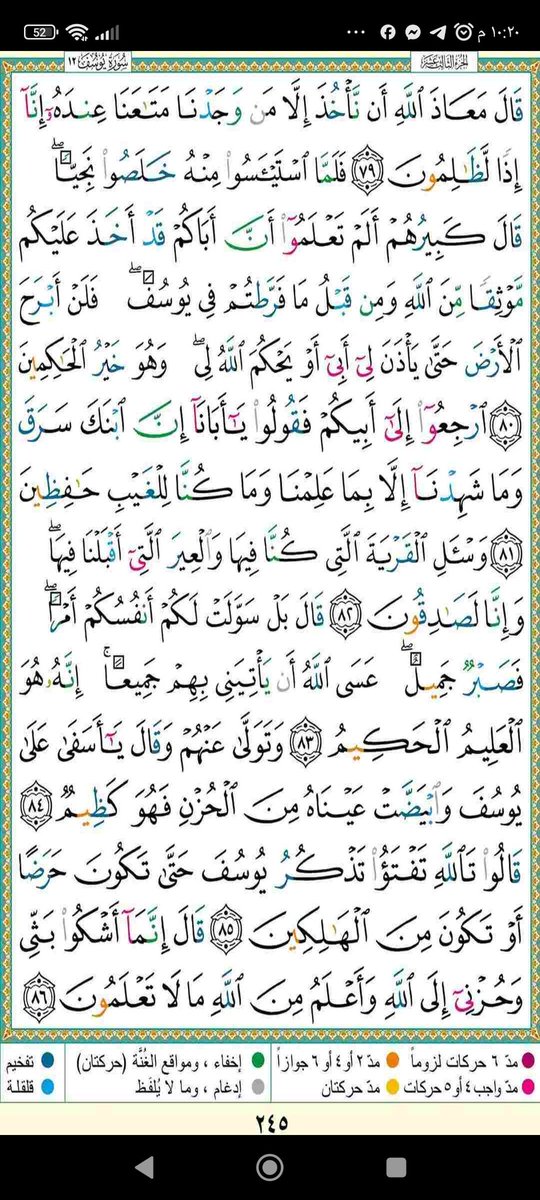 52
١٠:٢٠ م
سُورَةُ يُوسُفَ ١٢
الجزء الثالث عشر
قَالَ مَعَاذَ ٱللَّهِ أَن نَّأْخُذَ إِلَّا مَن وَجَدْنَا مَتَـٰعَنَا عِندَهُۥٓ إِنَّآ
إِذًا لَّظَـٰلِمُونَ ٧٩ فَلَمَّا ٱسْتَيْـَٔسُوا۟ مِنْهُ خَلَصُوا۟ نَجِيًّا ۖ
قَالَ كَبِيرُهُمْ أَلَمْ تَعْلَمُوٓا۟ أَنَّ أَبَاكُمْ قَدْ أَخَذَ عَلَيْكُم
مَّوْثِقًا مِّنَ ٱللَّهِ وَمِن قَبْلُ مَا فَرَّطتُمْ فِى يُوسُفَ ۖ فَلَنْ أَبْرَحَ
ٱلْأَرْضَ حَتَّىٰ يَأْذَنَ لِىٓ أَبِىٓ أَوْ يَحْكُمَ ٱللَّهُ لِى ۖ وَهُوَ خَيْرُ ٱلْحَـٰكِمِينَ
٨٠ ٱرْجِعُوٓا۟ إِلَىٰٓ أَبِيكُمْ فَقُولُوا۟ يَـٰٓأَبَانَآ إِنَّ ٱبْنَكَ سَرَقَ
وَمَا شَهِدْنَآ إِلَّا بِمَا عَلِمْنَا وَمَا كُنَّا لِلْغَيْبِ حَـٰفِظِينَ
٨١ وَسْـَٔلِ ٱلْقَرْيَةَ ٱلَّتِى كُنَّا فِيهَا وَٱلْعِيرَ ٱلَّتِىٓ أَقْبَلْنَا فِيهَا ۖ
وَإِنَّا لَصَـٰدِقُونَ ٨٢ قَالَ بَلْ سَوَّلَتْ لَكُمْ أَنفُسُكُمْ أَمْرًا ۖ
فَصَبْرٌ جَمِيلٌ ۖ عَسَى ٱللَّهُ أَن يَأْتِيَنِى بِهِمْ جَمِيعًا ۚ إِنَّهُۥ هُوَ
ٱلْعَلِيمُ ٱلْحَكِيمُ ٨٣ وَتَوَلَّىٰ عَنْهُمْ وَقَالَ يَـٰٓأَسَفَىٰ عَلَى
يُوسُفَ وَٱبْيَضَّتْ عَيْنَاهُ مِنَ ٱلْحُزْنِ فَهُوَ كَظِيمٌ ٨٤
قَالُوا۟ تَٱللَّهِ تَفْتَؤُا۟ تَذْكُرُ يُوسُفَ حَتَّىٰ تَكُونَ حَرَضًا
أَوْ تَكُونَ مِنَ ٱلْهَـٰلِكِينَ ٨٥ قَالَ إِنَّمَآ أَشْكُوا۟ بَثِّى
وَحُزْنِىٓ إِلَى ٱللَّهِ وَأَعْلَمُ مِنَ ٱللَّهِ مَا لَا تَعْلَمُونَ ٨٦
مدّ ٦ حركات لزوماً مدّ ٢ أو ٤ أو ٦ جوازاً إخفاء ، ومواقع الغُنَّة (حركتان) تفخيم
مدّ واجب ٤ أو ٥ حركات مدّ حركتان إدغام ، وما لا يُلفَظ قلقلة
٢٤٥